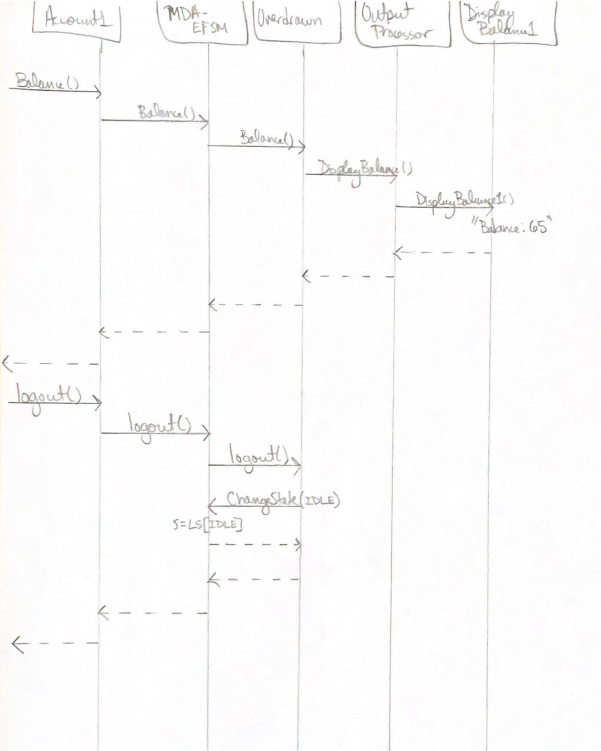 Account1
MDA-
EFSM
Overdrawn
Output
Processor
Display
Balance1
Balance()
Balance()
Balance()
DisplayBalance()
DisplayBalance1()
"Balance: 65"
logout()
logout()
logout()
ChangeState(IDLE)
S=LS[IDLE]